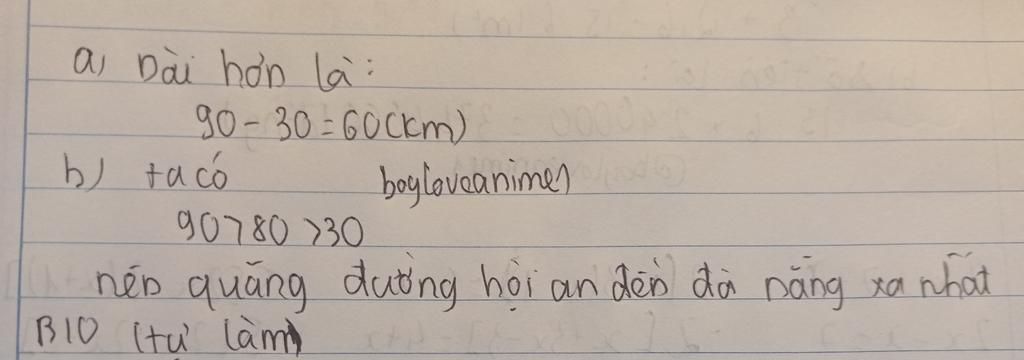 a) Dài hơn là:
90 - 30 = 60 (km)
b) ta có boyloveanime1
90 > 80 > 30
nên quãng đường hội an đến đà nẵng xa nhất
B10 (tự làm)